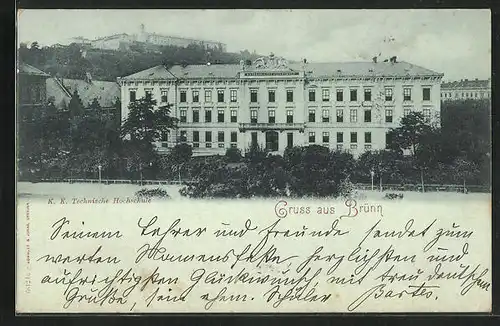 K. K. Technische Hochschule
Gruss aus Brünn
Seinem Lehrer und Freunde sendet zum
werten Namensfeste, herzlichsten und
aufrichtigsten Glückwunsch, mit treu deutschem
Gruße, sein ehem. Schüler